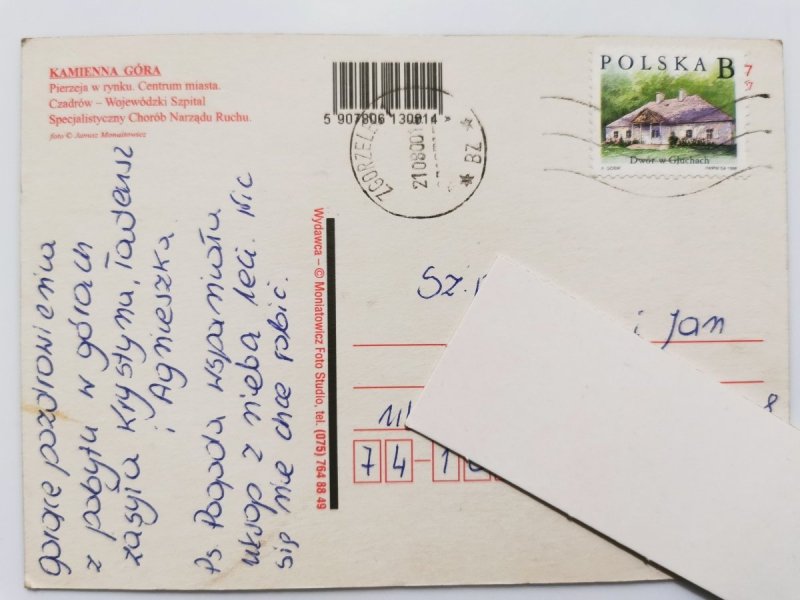 KAMIENNA GÓRA
Pierzeja w rynku. Centrum miasta.
Czadrów – Wojewódzki Szpital
Specjalistyczny Chorób Narządu Ruchu.
foto © Janusz Moniatowicz
5 907806 130014 >
ZGORZELE
21 08 00
* BZ *
POLSKA B
7
Dwór w Głuchach
gorące pozdrowienia
z pobytu w górach
zasyła Krystyna, Tadeusz
i Agnieszka
Ps Pogoda wspaniała
ukrop z nieba leci. Nic
się nie chce robić.
Wydawca – © Moniatowicz Foto Studio, tel. (075) 764 88 49
Sz.
i Jan
Ul
74-1